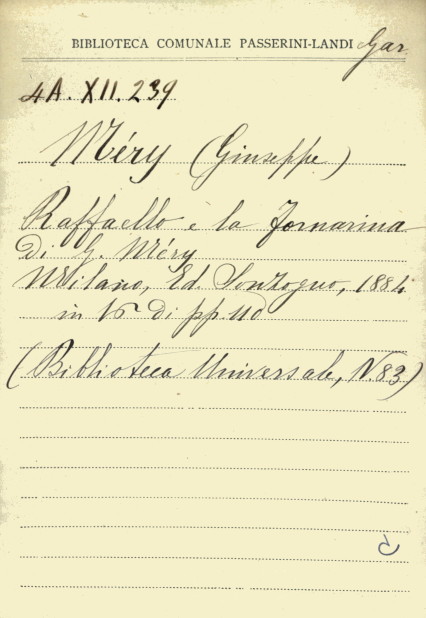 BIBLIOTECA COMUNALE PASSERINI-LANDI Gar
4A. XII. 239
Méry (Giuseppe)
Raffaello e la Fornarina
Di G. Méry
Milano, Ed. Sonzogno, 1884
in 16 di pp. 110
(Biblioteca Universale, N. 83)